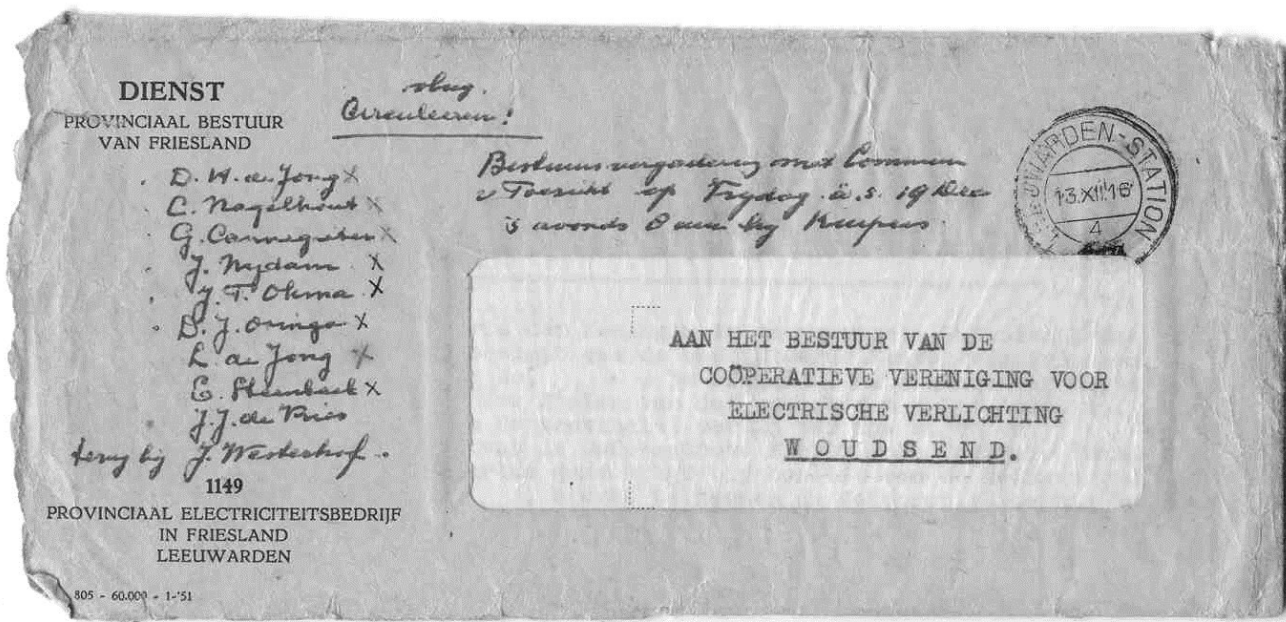 DIENST
PROVINCIAAL BESTUUR
VAN FRIESLAND
vlug.
Circuleeren!
D. H. de Jong x
C. Nagelhout x
G. Cannegieter x
J. Nydam x
J. T. Okma x
D. J. Oringa x
L. de Jong x
E. Steenbeek x
J. J. de Vries
terug bij J. Westerhof.
1149
PROVINCIAAL ELECTRICITEITSBEDRIJF
IN FRIESLAND
LEEUWARDEN
805 - 60.000 - 1-'51
Bestuursvergadering met Commissie
v Toezicht op Frydag a.s. 19 Dec
's avonds 8 uur by Kuipers
LEEUWARDEN-STATION
13.XII.16
4
AAN HET BESTUUR VAN DE
COÖPERATIEVE VERENIGING VOOR
ELECTRISCHE VERLICHTING
WOUDSEND.